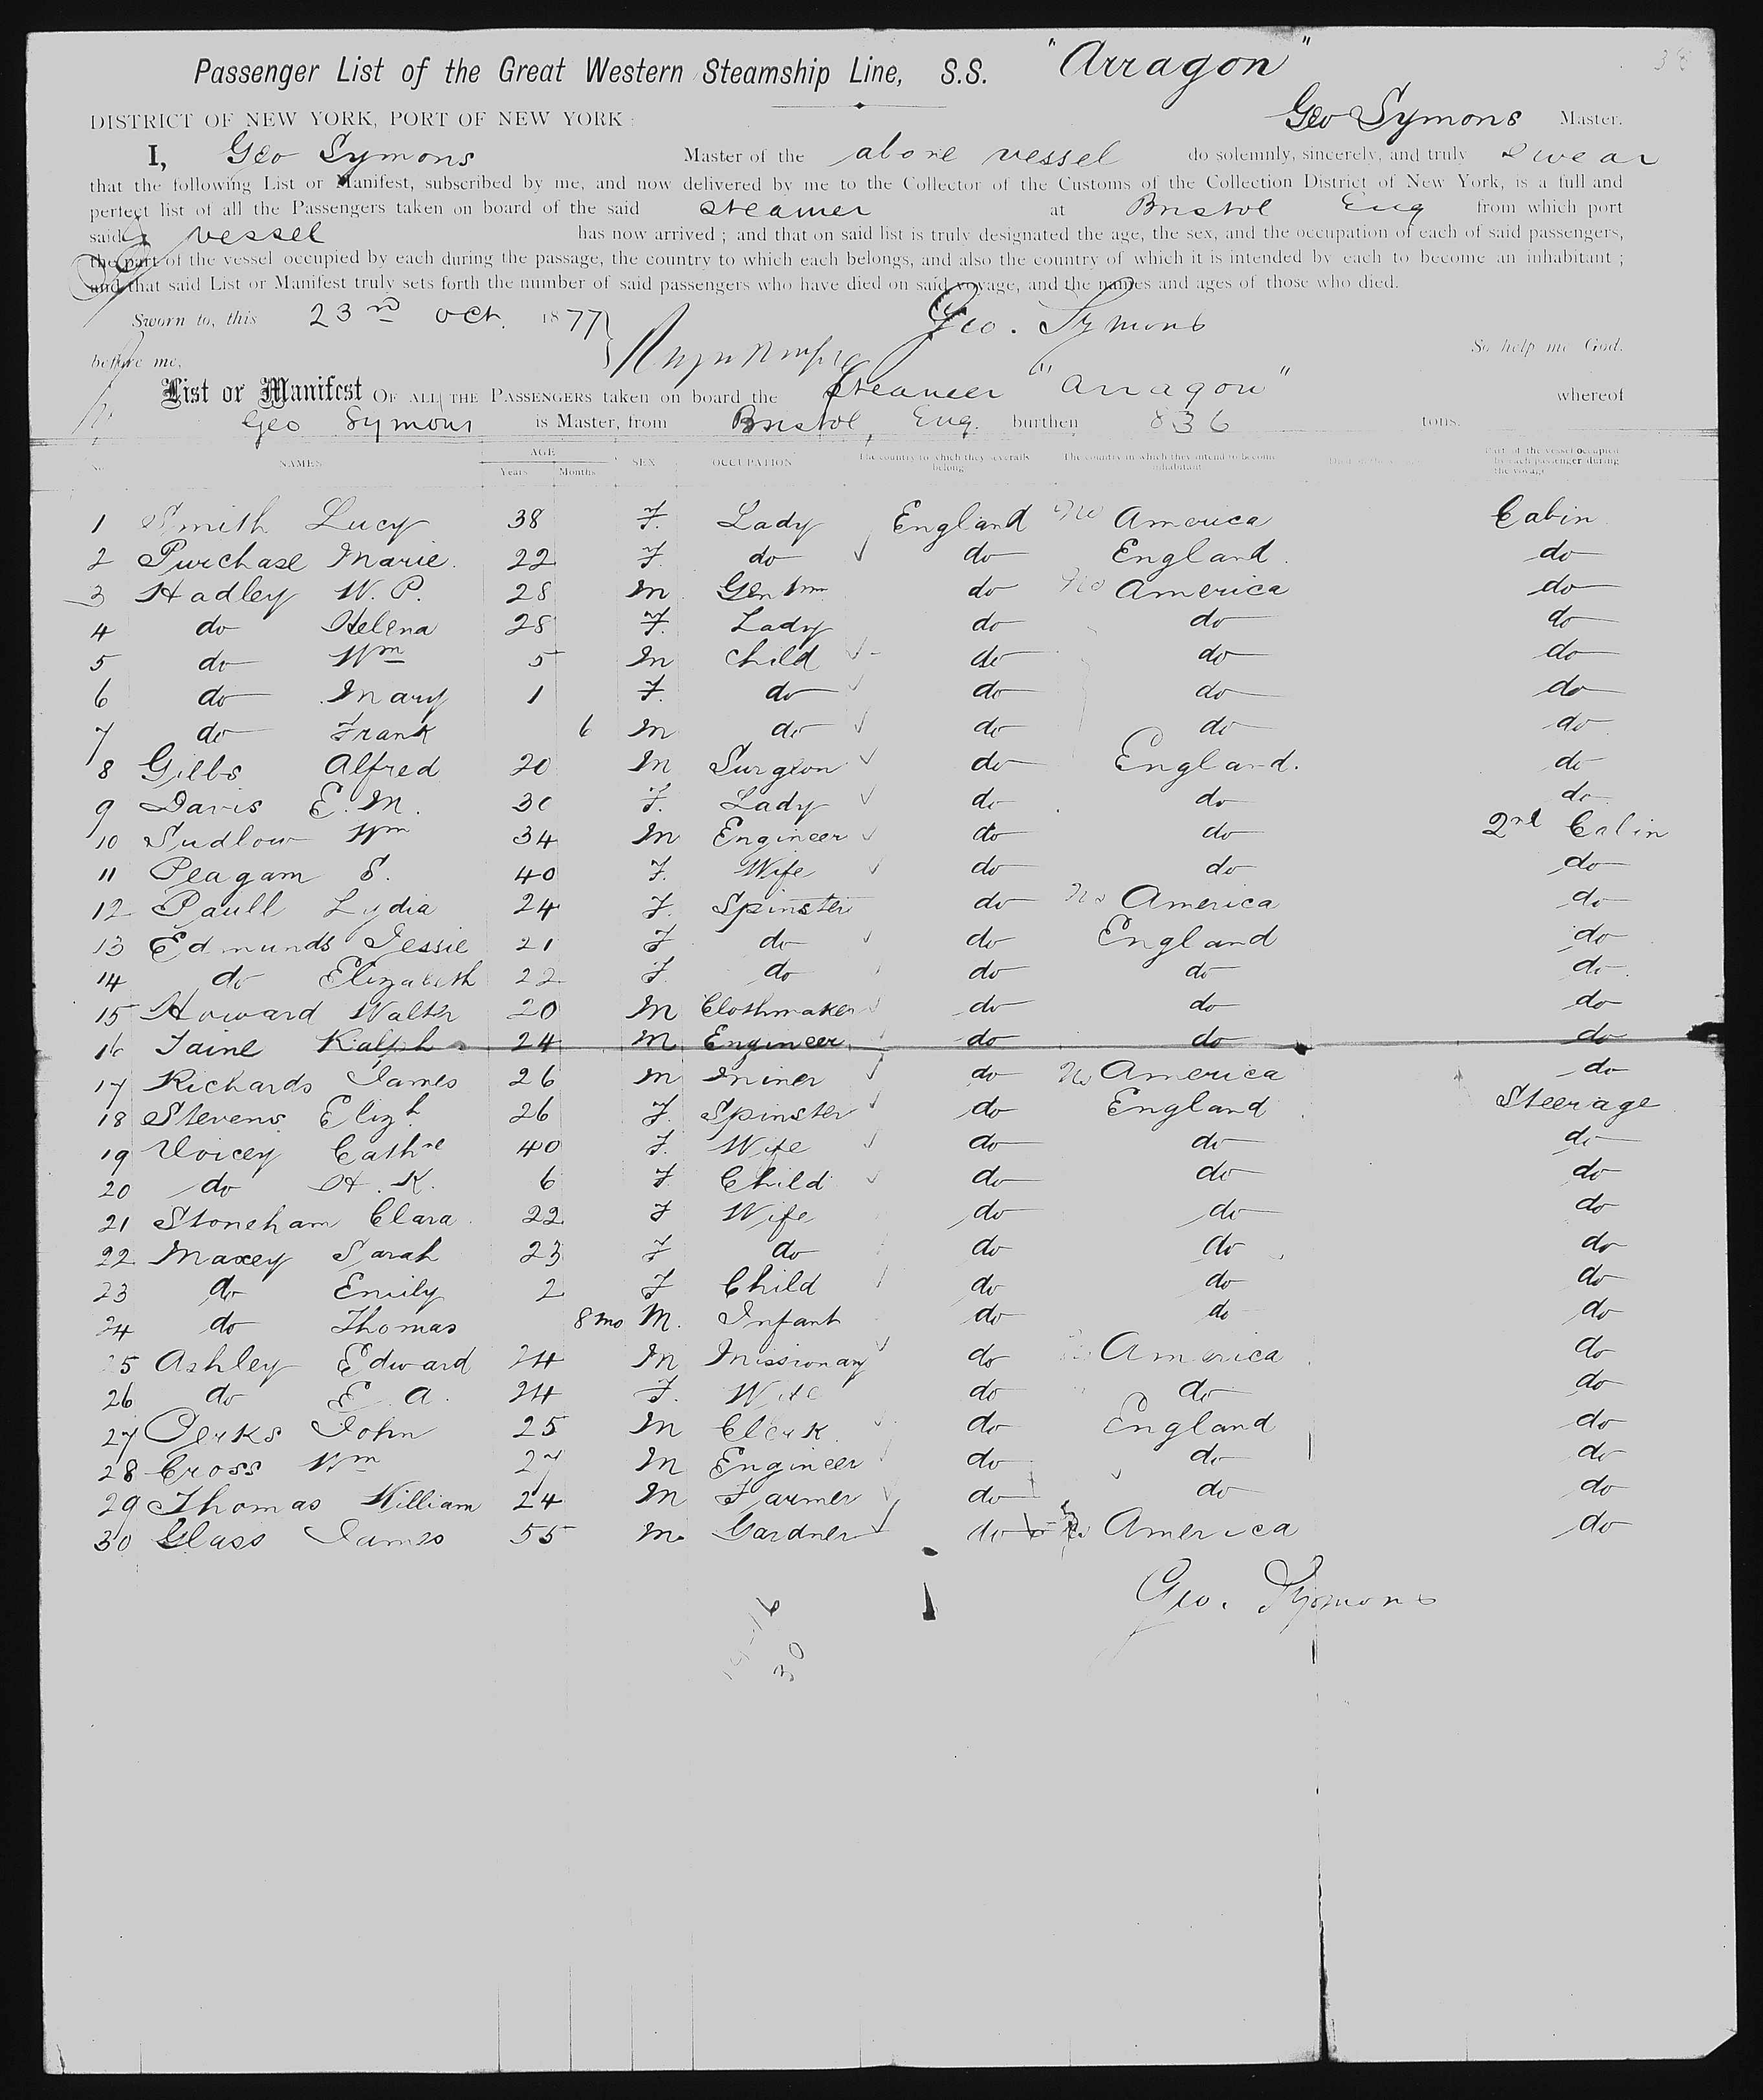 Passenger List of the Great Western Steamship Line, S.S. "Arragon"
DISTRICT OF NEW YORK, PORT OF NEW YORK: Geo Symons Master.
I, Geo Symons Master of the above vessel do solemnly, sincerely, and truly swear
that the following List or Manifest, subscribed by me, and now delivered by me to the Collector of the Customs of the Collection District of New York, is a full and
perfect list of all the Passengers taken on board of the said Steamer at Bristol Eng from which port
said vessel has now arrived; and that on said list is truly designated the age, the sex, and the occupation of each of said passengers,
the part of the vessel occupied by each during the passage, the country to which each belongs, and also the country of which it is intended by each to become an inhabitant;
and that said List or Manifest truly sets forth the number of said passengers who have died on said voyage, and the names and ages of those who died.
Sworn to, this 23rd Oct. 1877 Geo. Symons
before me, So help me God.
List or Manifest OF ALL THE PASSENGERS taken on board the Steamer "Arragon" whereof
Geo Symons is Master, from Bristol, Eng. burthen 836 tons.
No. NAMES AGE Years Months SEX OCCUPATION The country to which they severally belong The country in which they intend to become inhabitant Part of the vessel occupied by each passenger during the voyage
1 Smith Lucy 38 F. Lady England America Cabin
2 Purchase Marie. 22 F. do do England. do
3 Hadley W. P. 28 M Gentm do America do
4 do Helena 28 F. Lady do do do
5 do Wm 5 M child do do do
6 do Mary 1 F. do do do do
7 do Frank 6 M do do do do
8 Gibbs Alfred 20 M Surgeon do England. do
9 Davis E. M. 30 F. Lady do do do
10 Sudlow Wm 34 M Engineer do do 2nd Cabin
11 Peagam S. 40 F. Wife do do do
12 Paull Lydia 24 F. Spinster do No America do
13 Edmunds Jessie 21 F do do England do
14 do Elizabeth 22 F. do do do do
15 Howard Walter 20 M Clothmaker do do do
16 Taine Ralph 24 M Engineer do do do
17 Richards James 26 M Miner do No America do
18 Stevens Elizh 26 F. Spinster do England Steerage
19 Voicey Cathne 40 F. Wife do do do
20 do H. K. 6 F Child do do do
21 Stoneham Clara 22 F Wife do do do
22 Maxey Sarah 23 F do do do do
23 do Emily 2 F Child do do do
24 do Thomas 8 mo M. Infant do do do
25 Ashley Edward 24 M Missionary do America do
26 do E. A. 24 F. Wife do do do
27 Perks John 25 M Clerk do England do
28 Cross Wm 27 M Engineer do do do
29 Thomas William 24 M Farmer do do do
30 Glass James 55 M. Gardner do America do
Geo. Symons
30